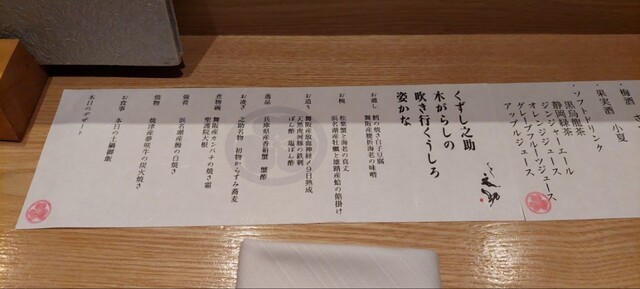 梅酒
・果実酒 小夏
・ソフトドリンク
黒烏龍茶
静岡緑茶
ジンジャーエール
オレンジジュース
グレープフルーツジュース
アップルジュース
くずし之助
木がらしの
吹き行くうしろ
姿かな
お通し
鱈の焼き白子豆腐
舞阪産腰折海老の味噌
お椀
松葉蟹と海老の真丈
浜名湖産牡蠣と雄踏産蛤の餡掛け
お造り
舞阪産放血神経〆9日熟成
天然虎河豚の鉄刺
ぽん酢 塩ぽん酢
逸品
兵庫県産香箱蟹 蟹酢
お凌ぎ
之助名物 初物からすみ蕎麦
煮物碗
舞阪産カンパチの焼き霜
聖護院大根
強肴
浜名湖産鰻の白焼き
焼物
焼津産夢咲牛の炭火焼き
お食事
本日の土鍋御飯
本日のデザート